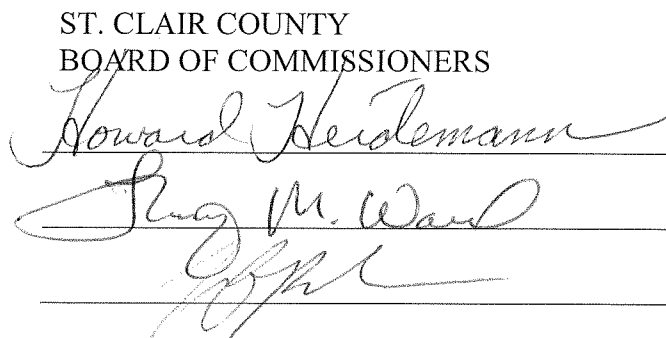 ST. CLAIR COUNTY
BOARD OF COMMISSIONERS
Howard Heidemann
M. Ward